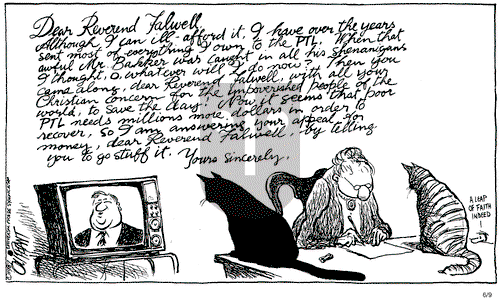 Dear Reverend Falwell,
Although I can ill-afford it, I have over the years
sent most of everything I own to the PTL. When that
awful Mr. Bakker was caught in all his shenanigans
I thought, O, whatever will I do now? Then you
came along, dear Reverend Falwell, with all your
Christian concern for the impoverished people of the
world, to save the day. Now it seems that poor
PTL needs millions more dollars in order to
recover, so I am answering your appeal for
money, dear Reverend Falwell, by telling
you to go stuff it. Yours sincerely,
A LEAP
OF FAITH
INDEED!
OLIPHANT
6/9